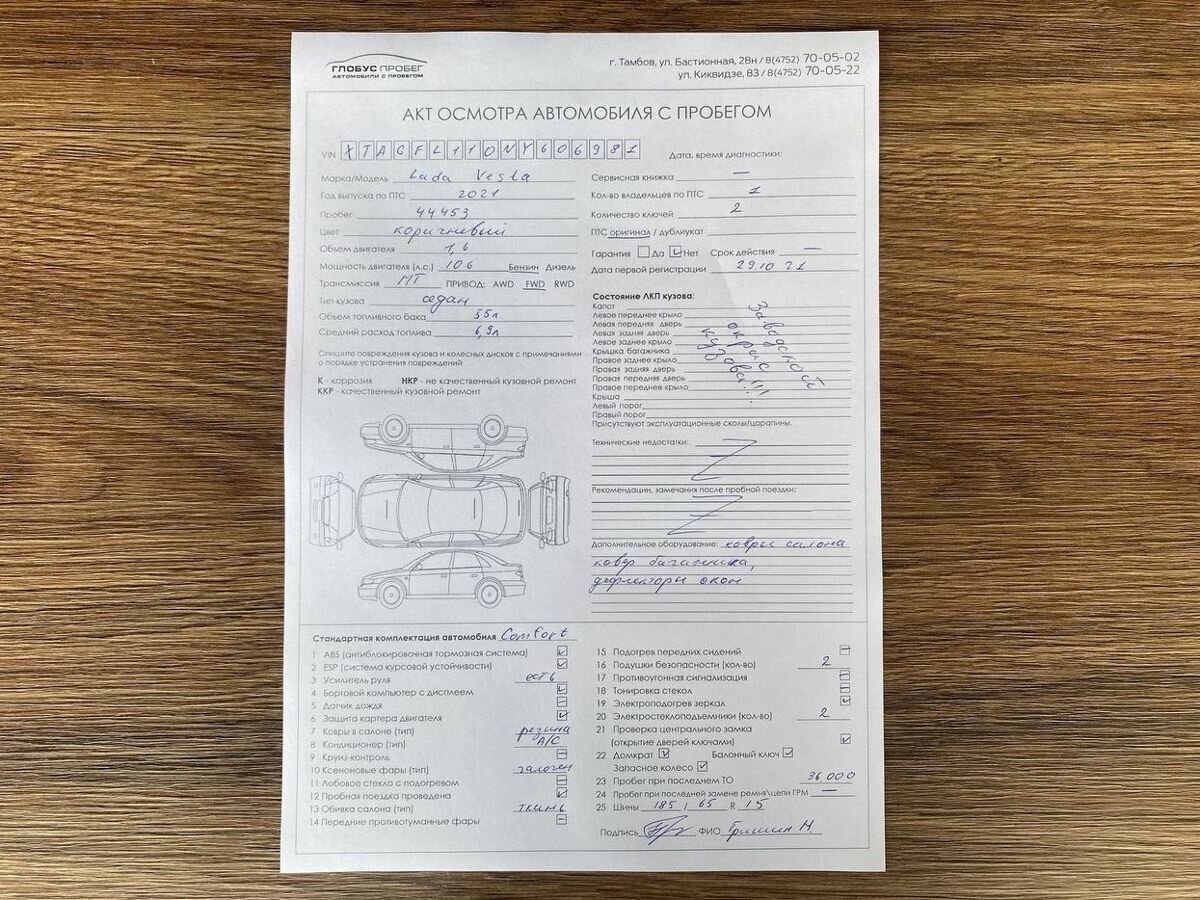 ГЛОБУС ПРОБЕГ
АВТОМОБИЛИ С ПРОБЕГОМ
г. Тамбов, ул. Бастионная, 28н / 8(4752) 70-05-02
ул. Киквидзе, 83 / 8(4752) 70-05-22
АКТ ОСМОТРА АВТОМОБИЛЯ С ПРОБЕГОМ
VIN XTAGFL110NY606981
Дата, время диагностики:
Марка/Модель Lada Vesta
Год выпуска по ПТС 2021
Пробег 44453
Цвет коричневый
Объем двигателя 1,6
Мощность двигателя (л.с.) 106 Бензин Дизель
Трансмиссия МТ ПРИВОД: AWD FWD RWD
Тип кузова седан
Объем топливного бака 55л
Средний расход топлива 6,9л
Сервисная книжка —
Кол-во владельцев по ПТС 1
Количество ключей 2
ПТС оригинал / дубликат
Гарантия Да Нет Срок действия —
Дата первой регистрации 29.10 21
Опишите повреждения кузова и колесных дисков с примечаниями
о порядке устранения повреждений
К - коррозия НКР - не качественный кузовной ремонт
ККР - качественный кузовной ремонт
Состояние ЛКП кузова:
Капот
Левое переднее крыло
Левая передняя дверь
Левая задняя дверь
Левое заднее крыло
Крышка багажника
Правое заднее крыло
Правая задняя дверь
Правая передняя дверь
Правое переднее крыло
Крыша
Левый порог
Правый порог
Заводской
окрас
кузова!!!
Присутствуют эксплуатационные сколы/царапины.
Технические недостатки:
Рекомендации, замечания после пробной поездки:
Дополнительное оборудование: ковры салона
ковер багажника,
дефлекторы окон
Стандартная комплектация автомобиля Comfort
1 ABS (антиблокировочная тормозная система)
2 ESP (система курсовой устойчивости)
3 Усилитель руля есть
4 Бортовой компьютер с дисплеем
5 Датчик дождя
6 Защита картера двигателя
7 Ковры в салоне (тип) резина
8 Кондиционер (тип) A/C
9 Круиз-контроль
10 Ксеноновые фары (тип) галоген
11 Лобовое стекло с подогревом
12 Пробная поездка проведена
13 Обивка салона (тип) ткань
14 Передние противотуманные фары
15 Подогрев передних сидений
16 Подушки безопасности (кол-во) 2
17 Противоугонная сигнализация
18 Тонировка стекол
19 Электроподогрев зеркал
20 Электростеклоподъемники (кол-во) 2
21 Проверка центрального замка
(открытие дверей ключами)
22 Домкрат Балонный ключ
Запасное колесо
23 Пробег при последнем ТО 36 000
24 Пробег при последней замене ремня\цепи ГРМ —
25 Шины 185 / 65 R 15
Подпись ФИО Гришин Н.